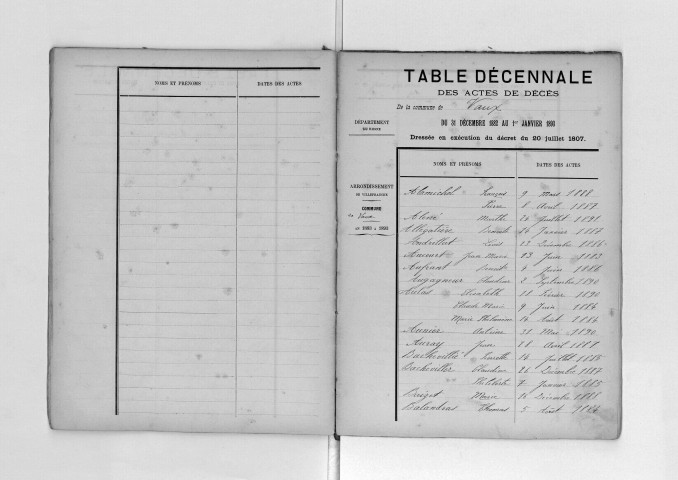 NOMS ET PRÉNOMS DATES DES ACTES
TABLE DÉCENNALE
DES ACTES DE DÉCÈS
De la commune de Vaux
DU 31 DÉCEMBRE 1882 AU 1er JANVIER 1893
Dressée en exécution du décret du 20 juillet 1807.
DÉPARTEMENT
DU RHONE
ARRONDISSEMENT
DE VILLEFRANCHE
COMMUNE
de Vaux
DE 1883 à 1893
NOMS ET PRÉNOMS DATES DES ACTES
Alamichel François 9 Mars 1888
Pierre 8 Avril 1887
Marthe 20 Juillet 1891
Benoit Janvier
Louis 22 Décembre 1886
Jean Marie 23 Juin 1883
Benoit 4 Juin 1886
Claudine 2 Septembre 1890
Aulas Elisabeth 18 Février 1890
Claude Marie 9 Juin 1884
Marie Philomène 14 Août 1884
Aunier Antoine 31 Mai 1890
Auray Jean 21 Avril
Pierrette 14 Juillet 1885
Claudine 24 Décembre 1887
7 Janvier 1885
Marie 16 Décembre
Balandras Thomas 5 Août